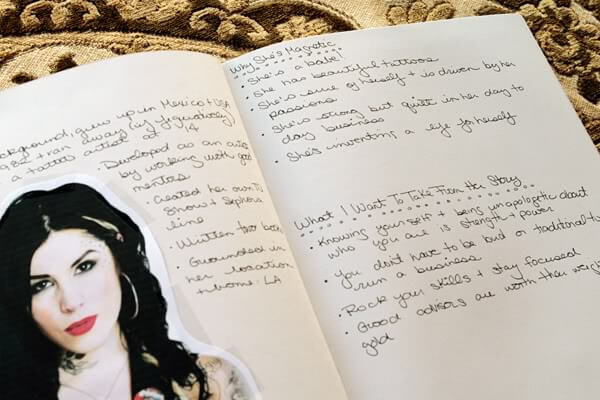 ckground, grew up in Mexico + USA
982 + ran away
a tattoo artist at 14
• Developed as an
by working with good
mentors
• Created her own TV
Show + Sephora
line
• Written two
• Grounded in
her location
+ home: LA
Why She's Magnetic
• She's a babe!
• She has beautiful tattoos
• She's sure of herself + is driven by her
passions
• She's strong but quiet in her day to
day business
• She's inventing a life for herself
What I Want To Take From Her Story
• Knowing yourself + being unapologetic about
who you are is strength + power
• You don't have to be bud or traditional t
run a business
• Rock your skills + stay focused
• Good advisors are worth their weigh
gold